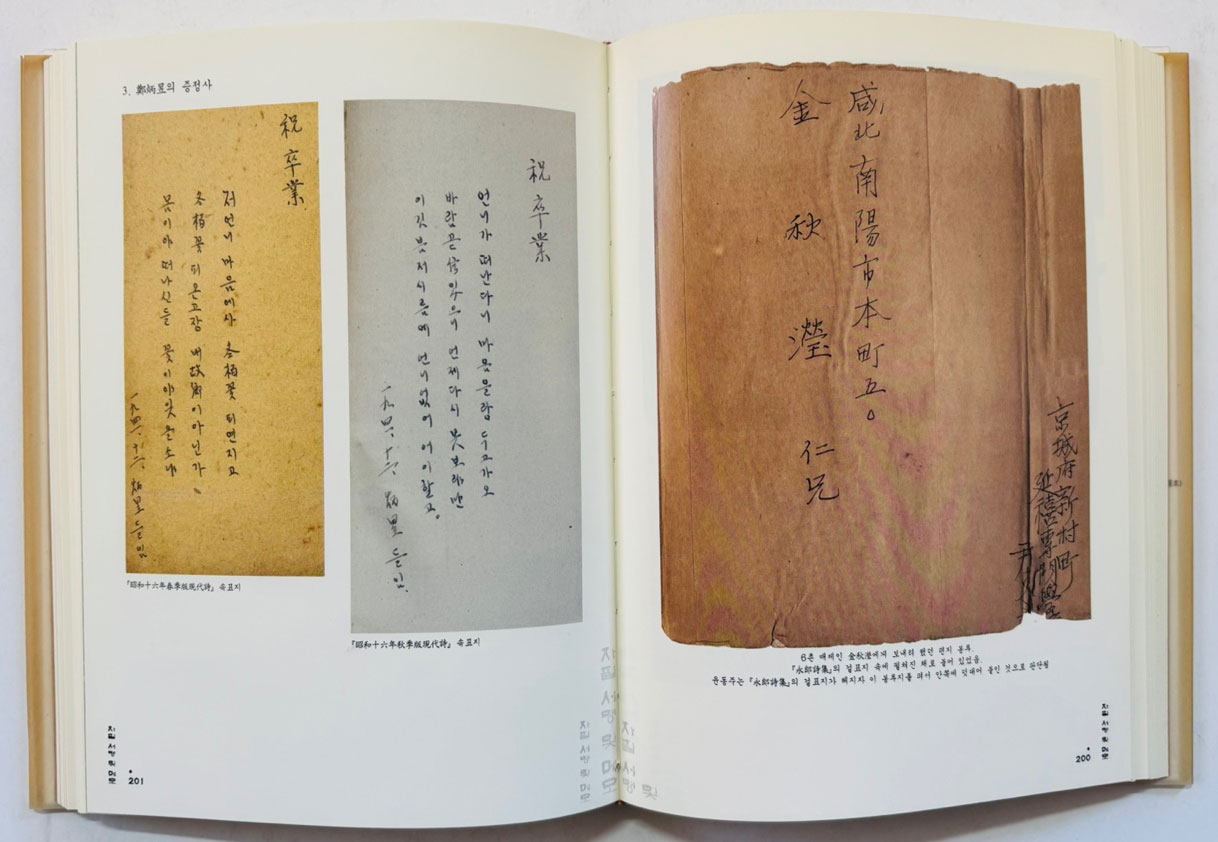 3. 鄭炳昱의 증정사
祝 卒業
저 언니 마음에사 冬栢꽃 피연지고
冬栢꽃 피온고장 내故鄕이아닌가
몸이야 떠나신들 꽃이야잊을소냐
들임
『昭和十六年春季版現代詩』 속표지
祝 卒業
언니가 떠난다니 마음을랑 두고가오
바람곧 信있으니 언제다시 못보랴만
이깃븟저시름에 언니없어 어이할고。
들임
『昭和十六年秋季版現代詩』 속표지
자필 서명 및 메모
201
咸北南陽市本町五。
金 秋 瀅 仁兄
京城府新村町
延禧專門學
尹
6촌 매제인 金秋瀅에게 보내려 했던 편지 봉투.
『永郎詩集』의 겉표지 속에 펼쳐진 채로 붙어 있었음.
윤동주는 『永郎詩集』의 겉표지가 헤지자 이 봉투지를 뒤어 안쪽에 덧대어 붙인 것으로 판단됨
200
자필 서명 및 메모